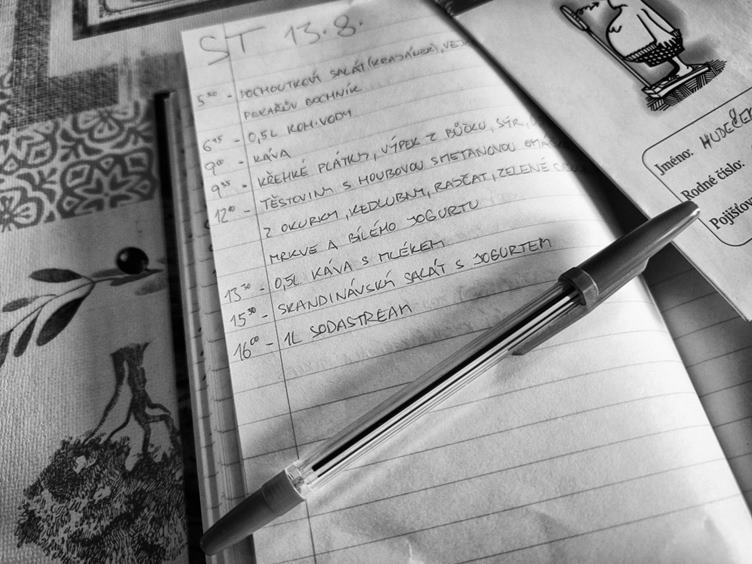 ST 13.8.
5³⁰ - POCHOUTKOVÝ SALÁT (KRAJÁNEK), VEJ
PEKAŘŮV BOCHNÍK
6⁴⁵ - 0,5L KOH. VODY
9⁰⁰ - KÁVA
9⁵⁵ - KŘEHKÉ PLÁTKY, VÝPEK Z BŮČKU, SÝR,
12⁰⁰ - TĚSTOVINY S HOUBOVOU SMETANOVOU OMÁ
Z OKURKY, KEDLUBNY, RAJČAT, ZELENÉ
MRKVE A BÍLÉHO JOGURTU
13³⁰ - 0,5L KÁVA S MLÉKEM
15³⁰ - SKANDINÁVSKÝ SALÁT S JOGURTEM
16⁰⁰ - 1L SODASTREAM
Jméno:
Rodné číslo:
Pojišťov